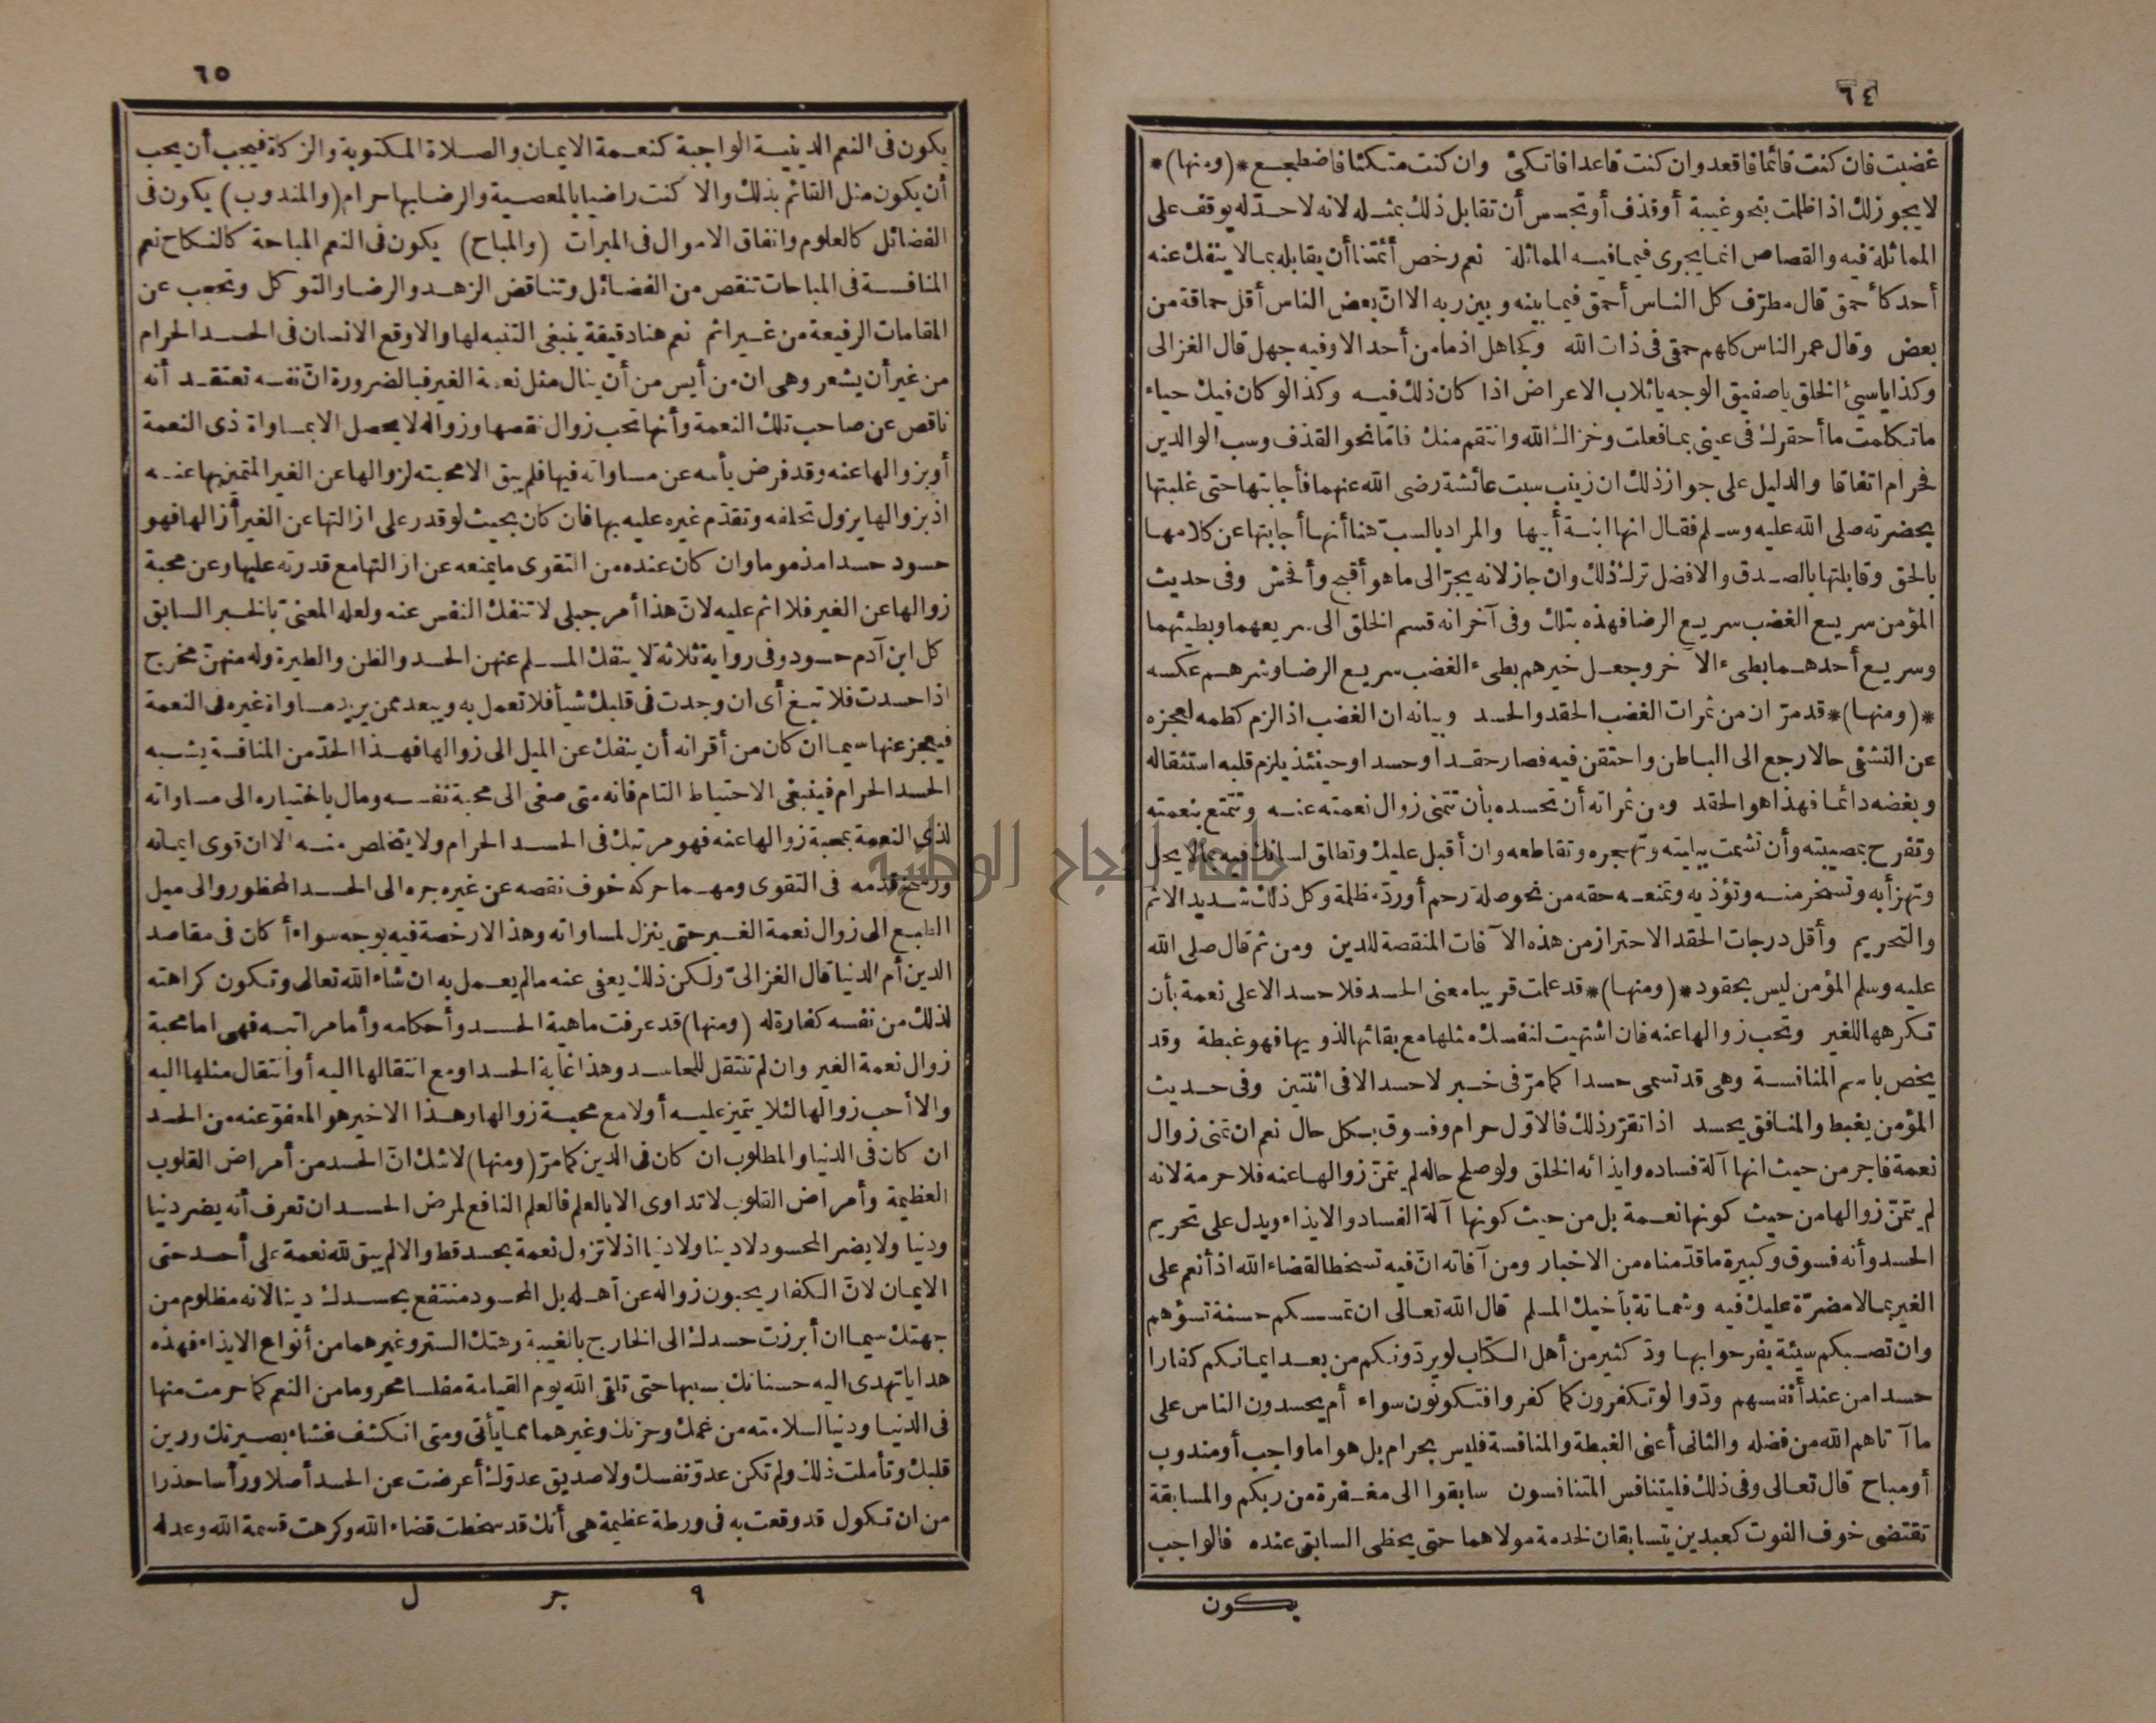 ٦٤
غضبت فان كنت قائما فاقعد وان كنت قاعدا فاتكئ وان كنت متكئا فاضطجع *(ومنها)*
لا يجوز لك اذا ظلمت بنحو غيبة أو قذف أو تجسس أن تقابل ذلك بمثله لانه لا حدّ له يوقف على
المماثلة فيه والقصاص انما يجرى فيما فيه المماثلة نعم رخص أئمتنا أن يقابله بما لا ينفك عنه
أحد كأحمق قال مطرّف كل الناس أحمق فيما بينه وبين ربه الا انّ بعض الناس أقل حماقة من
بعض وقال عمر الناس كلهم حمقى فى ذات الله وكجاهل اذ ما من أحد الا وفيه جهل قال الغزالى
وكذا يا سيئ الخلق يا صفيق الوجه يا ثلاب الاعراض اذا كان ذلك فيه وكذا لو كان فيك حياء
ما تكلمت ما أحقرك فى عينى بما فعلت وخزاك الله وانتقم منك فامّا نحو القذف وسب الوالدين
فحرام اتفاقا والدليل على جواز ذلك ان زينب سبت عائشة رضى الله عنهما فأجابتها حتى غلبتها
بحضرته صلى الله عليه وسلم فقال انها ابنة أبيها والمراد بالسب هنا أنها أجابتها عن كلامها
بالحق وقابلتها بالصدق والافضل ترك ذلك وان جاز لانه يجرّ الى ما هو أقبح وأفحش وفى حديث
المؤمن سريع الغضب سريع الرضا فهذه بتلك وفى آخر انه قسم الخلق الى سريعهما وبطيئهما
وسريع أحدهما بطىء الآخر وجعل خيرهم بطىء الغضب سريع الرضا وشرهم عكسه
*(ومنها)* قد مرّ ان من ثمرات الغضب الحقد والحسد وبيانه ان الغضب اذا لزم كظمه لعجزه
عن التشفى حالا رجع الى الباطن واحتقن فيه فصار حقدا وحسدا وحينئذ يلزم قلبه استثقاله
وبغضه دائما فهذا هو الحقد ومن ثمراته أن تحسده بأن تتمنى زوال نعمته عنه وتتمتع بنعمته
وتفرح بمصيبته وأن تشمت ببليته وتهجره وتقاطعه وان أقبل عليك وتطلق لسانك فيه بما لا يحل
وتهزأ به وتسخر منه وتؤذيه وتمنعه حقه من نحو صلة رحم أو ردّ مظلمة وكل ذلك شديد الاثم
والتحريم وأقل درجات الحقد الاحتراز من هذه الآفات المنقصة للدين ومن ثم قال صلى الله
عليه وسلم المؤمن ليس بحقود *(ومنها)* قد علمت قريبا معنى الحسد فلا حسد الا على نعمة بأن
تكرهها للغير وتحب زوالها عنه فان اشتهيت لنفسك مثلها مع بقائها لذويها فهو غبطة وقد
يخص باسم المنافسة وهى قد تسمى حسدا كما مرّ فى خبر لا حسد الا فى اثنتين وفى حديث
المؤمن يغبط والمنافق يحسد اذا تقرّر ذلك فالاوّل حرام وفسوق بكل حال نعم ان تمنى زوال
نعمة فاجر من حيث انها آلة فساده وايذائه الخلق ولو صلح حاله لم يتمنّ زوالها عنه فلا حرمة لانه
لم يتمنّ زوالها من حيث كونها نعمة بل من حيث كونها آلة الفساد والايذاء ويدل على تحريم
الحسد وأنه فسوق وكبيرة ما قدّمناه من الاخبار ومن آفاته انّ فيه تسخطا لقضاء الله اذ أنعم على
الغير بما لا مضرّة عليك فيه وشماتة بأخيك المسلم قال الله تعالى ان تمسسكم حسنة تسؤهم
وان تصبكم سيئة يفرحوا بها ودّ كثير من أهل الكتاب لو يردّونكم من بعد ايمانكم كفارا
حسدا من عند أنفسهم ودّوا لو تكفرون كما كفروا فتكونون سواء أم يحسدون الناس على
ما آتاهم الله من فضله والثانى أعنى الغبطة والمنافسة فليس بحرام بل هو اما واجب أو مندوب
أو مباح قال تعالى وفى ذلك فليتنافس المتنافسون سابقوا الى مغفرة من ربكم والمسابقة
تقتضى خوف الفوت كعبدين يتسابقان لخدمة مولاهما حتى يحظى السابق عنده فالواجب
يكون
٦٥
يكون فى النعم الدينية الواجبة كنعمة الايمان والصلاة المكتوبة والزكاة فيجب أن يحب
أن يكون مثل القائم بذلك والا كنت راضيا بالمعصية والرضا بها حرام (والمندوب) يكون فى
الفضائل كالعلوم وانفاق الاموال فى المبرات (والمباح) يكون فى النعم المباحة كالنكاح نعم
المنافسة فى المباحات تنقص من الفضائل وتناقض الزهد والرضا والتوكل وتحجب عن
المقامات الرفيعة من غير اثم نعم هنا دقيقة ينبغى التنبه لها والا وقع الانسان فى الحسد الحرام
من غير أن يشعر وهى ان من أيس من أن ينال مثل نعمة الغير فبالضرورة انّ نفسه تعتقد أنه
ناقص عن صاحب تلك النعمة وأنها تحب زوال نقصها وزواله لا يحصل الا بمساواة ذى النعمة
أو بزوالها عنه وقد فرض يأسه عن مساواته فيها فلم يبق الا محبته لزوالها عن الغير المتميز بها عنه
اذ بزوالها يزول تخلفه وتقدّم غيره عليه بها فان كان بحيث لو قدر على ازالتها عن الغير أزالها فهو
حسود حسدا مذموما وان كان عنده من التقوى ما يمنعه عن ازالتها مع قدرته عليها وعن محبة
زوالها عن الغير فلا اثم عليه لانّ هذا أمر جبلى لا تنفك النفس عنه ولعله المعنىّ بالخبر السابق
كل ابن آدم حسود وفى رواية ثلاثة لا ينفك المسلم عنهن الحسد والظن والطيرة وله منهنّ مخرج
اذا حسدت فلا تبغ أى ان وجدت فى قلبك شيأ فلا تعمل به ويبعد ممن يريد مساواة غيره فى النعمة
فيعجز عنها سيما ان كان من أقرانه أن ينفك عن الميل الى زوالها فهذا الحدّ من المنافسة يشبه
الحسد الحرام فينبغى الاحتياط التام فانه متى صغى الى محبة نفسه ومال باختياره الى مساواته
لذى النعمة بمحبة زوالها عنه فهو مرتبك فى الحسد الحرام ولا يتخلص منه الا ان قوى ايمانه
ورسخ قدمه فى التقوى ومهما حركه خوف نقصه عن غيره جره الى الحسد المحظور والى ميل
الطبع الى زوال نعمة الغير حتى ينزل لمساواته وهذا لا رخصة فيه بوجه سواء أكان فى مقاصد
الدين أم الدنيا قال الغزالىّ ولكن ذلك يعفى عنه ما لم يعمل به ان شاء الله تعالى وتكون كراهته
لذلك من نفسه كفارة له (ومنها) قد عرفت ماهية الحسد وأحكامه وأما مراتبه فهى اما محبة
زوال نعمة الغير وان لم تنتقل للحاسد وهذا غاية الحسد أو مع انتقالها اليه أو انتقال مثلها اليه
والا أحب زوالها لئلا يتميز عليه أولا مع محبة زوالها وهذا الاخير هو المعفوّ عنه من الحسد
ان كان فى الدنيا والمطلوب ان كان فى الدين كما مرّ (ومنها) لا شك انّ الحسد من أمراض القلوب
العظيمة وأمراض القلوب لا تداوى الا بالعلم فالعلم النافع لمرض الحسد ان تعرف أنه يضر دنيا
ودنيا ولا يضر المحسود لا دينا ولا دنيا اذ لا تزول نعمة بحسد قط والا لم يبق لله نعمة على أحد حتى
الايمان لانّ الكفار يحبون زواله عن أهله بل المحسود منتفع بحسدك دينا لانه مظلوم من
جهتك سيما ان أبرزت حسدك الى الخارج بالغيبة وهتك الستر وغيرهما من أنواع الايذاء فهذه
هدايا تهدى اليه حسناتك بسببها حتى تلقى الله يوم القيامة مفلسا محروما من النعم كما حرمت منها
فى الدنيا ودنيا لسلامته من غمك وحزنك وغيرهما مما يأتى ومتى انكشف غشاء بصيرتك ورين
قلبك وتأملت ذلك ولم تكن عدوّ نفسك ولا صديق عدوّك أعرضت عن الحسد أصلا ورأسا حذرا
من ان تكون قد وقعت به فى ورطة عظيمة هى أنك قد سخطت قضاء الله وكرهت قسمة الله وعدله
٩ جر ل
جامعة النجاح الوطنية